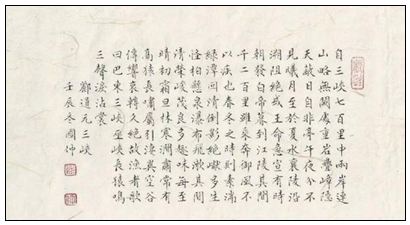 自三峽七百里中兩岸連
山略無闕處重岩疊嶂隱
天蔽日自非亭午夜分不
見曦月至於夏水襄陵沿
溯阻絶或王命急宣有時
朝發白帝暮到江陵其間
千二百里雖乘奔御風不
以疾也春冬之時則素湍
綠潭回清倒影絶巘多生
怪柏懸泉瀑布飛漱其間
清榮峻茂良多趣味每至
晴初霜旦林寒澗肅常有
高猿長嘯屬引淒異空谷
傳響哀轉久絶故漁者歌
曰巴東三峽巫峽長猿鳴
三聲淚沾裳
酈道元三峽
壬辰冬國仲